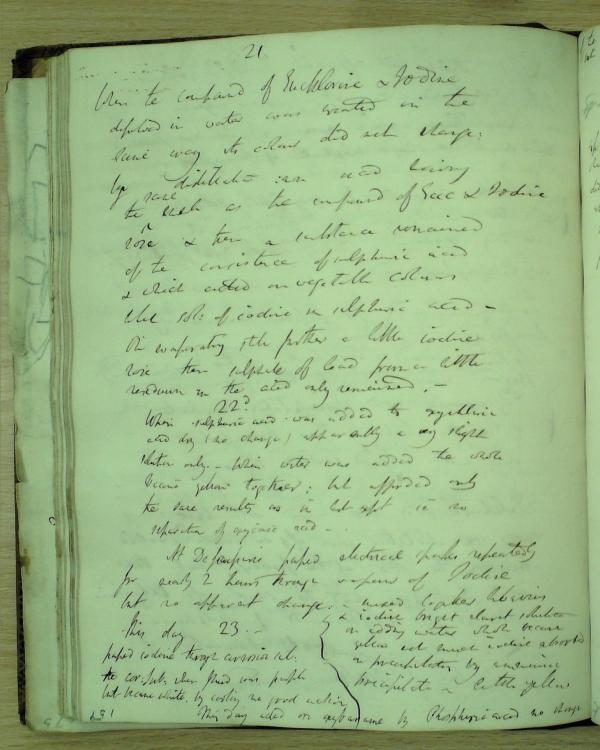 21
When the compound of Euchlorine & Iodine
dissolved in water was treated in the
same way its colour did not change:
by distillation an acid having
same
the as the compound of Euc & Iodine
rose & then a substance remained
of the consistence of sulphuric acid
& which acted on vegetable colours
like sol: of iodine in sulphuric acid –
On evaporating still further a little iodine
rose then sulphate of lead from a little
in the acid only remained. –
22d
When sulphuric acid was added to
acid dry (no change) apparently a very slight
solution only. – When water was added the whole
became yellow together; but afforded only
the same results as in last expt ie no
separation of acid –
At passed electrical sparks repeatedly
for nearly 2 hours through vapour of Iodine
but no apparent change. mixed
& iodine bright claret solution
on adding water whole became
yellow and much iodine absorbed
precipitates by ammonia
precipitate a little yellow
This day 23. –
passed iodine through corrosive sub.
the cor. sub. when fluid was purple
but became white by cooling no good action
This day acted on by Phosphoric acid no change